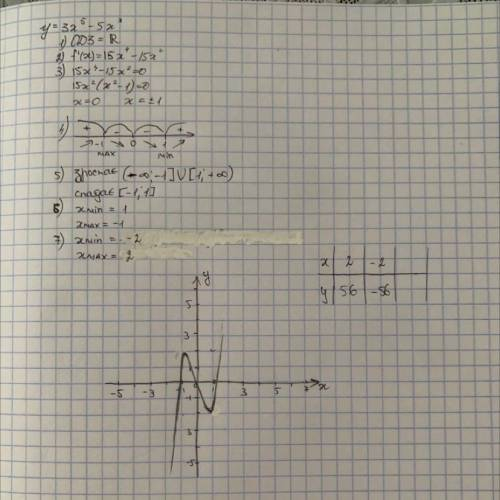 y = 3x⁵ - 5x³
1) ОДЗ = ℝ
2) f'(x) = 15x⁴ - 15x²
3) 15x⁴ - 15x² = 0
15x²(x² - 1) = 0
x = 0 x = ±1
4) + - - +
-1 0 1
max min
5) зростає (-∞; -1] ∪ [1; +∞)
спадає [-1; 1]
6) xmin = 1
xmax = -1
7) xmin = -2
xmax = 2
x 2 -2
y 56 -56
y
5
3
-5 -3 -1 1 3 5 7 x
-3
-5